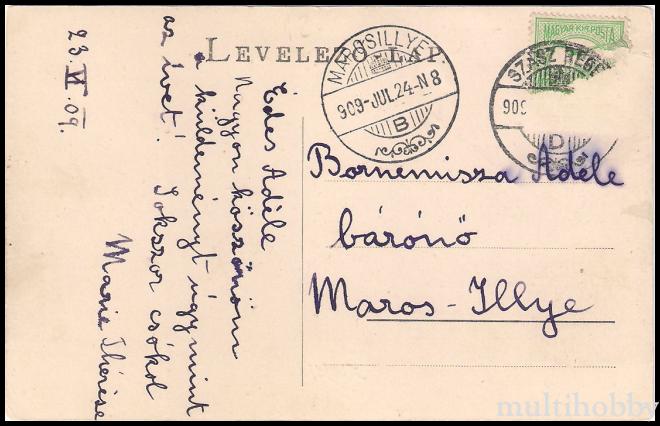 LEVELEZŐ-LAP.
MAGYAR KIR. POSTA
MAROSILLYE
909-JUL.24-N8
B
SZÁSZ RÉGEN
909
D
23. VII. 09.
Édes Adéle
Nagyon köszönöm
a küldeményt úgymint
az ivet! Sokszor csókol
Marie Thérèse
Bornemisza Adéle
bárónő
Maros-Illye
multihobby